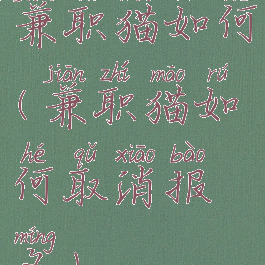 兼职猫如何
jiān zhí māo rú
(兼职猫如
hé qǔ xiāo bào
何取消报
míng